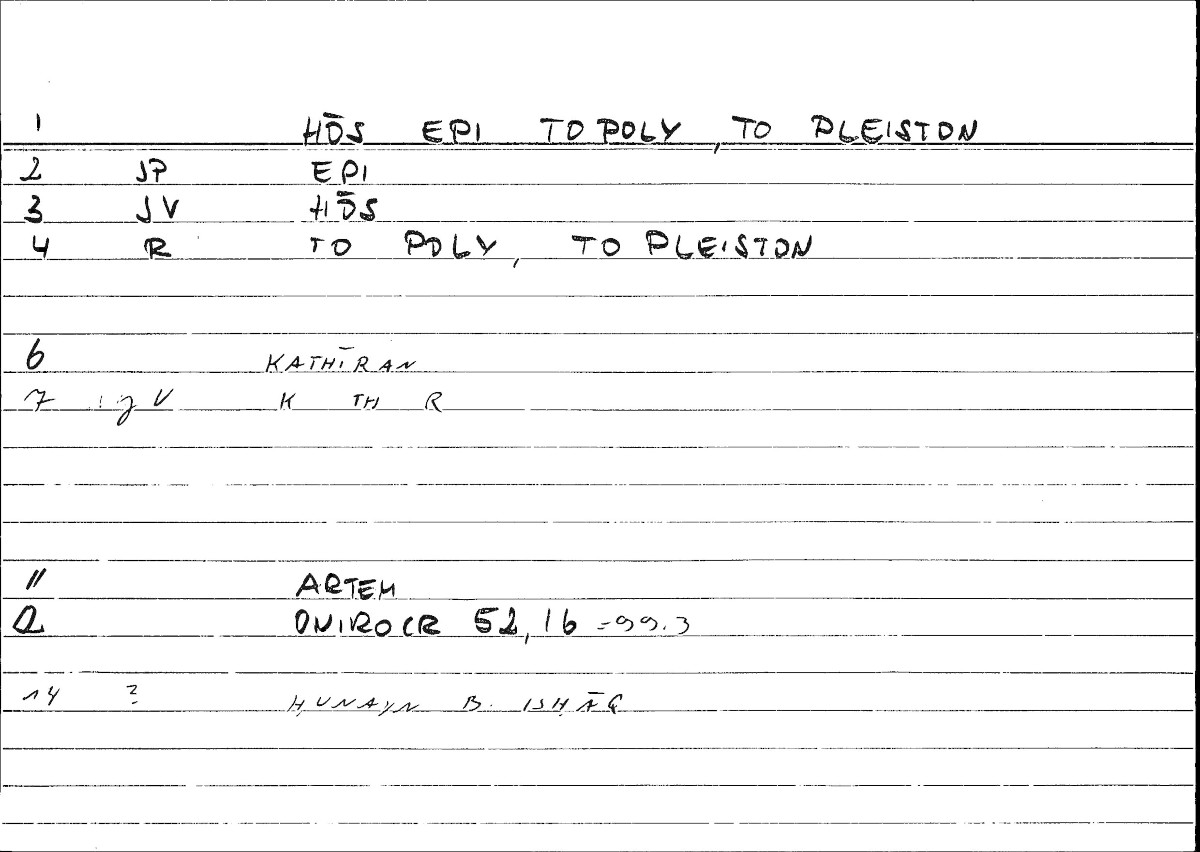 1 HŌS EPI TO POLY, TO PLEISTON
2 SP EPI
3 SV HŌS
4 R TO POLY, TO PLEISTON
6 KATHĪRAN
7 V K TH R
11 ARTEM
12 ONIROCR 52,16 =99.3
14 ? ḤUNAYN B. ISḤĀQ